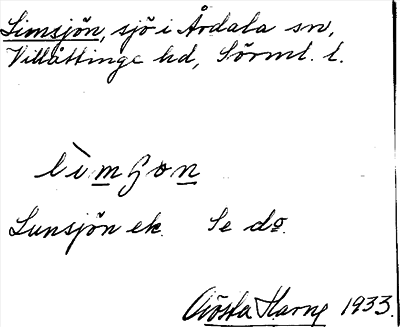 Limsjön, sjö i Årdala sn,
Villåttinge hd, Sörml. l.
lìmʒon
Lunsjön ek. Se do.
Gösta Harne 1933.